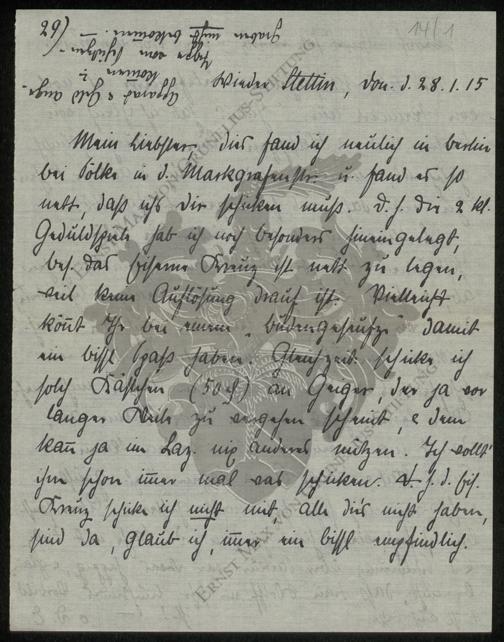 29)
14/1
Apparat & Geld ange-
kommen
graben nicht bekommen. –
Wieder Stettin, Don. d. 28.1.15
Mein Liebster, dies fand ich neulich in Berlin
bei Völke in d. Markgrafenstr. u. fand es so
nett, daß ichs dir schicken muß. D. h. die 2 kl.
Geduldspiele hab ich noch besonders hineingelegt,
bes. das Eiserne Kreuz ist nett zu legen,
weil keine Auflösung drauf ist. Vielleicht
könnt Ihr bei einem damit
ein bissl Spaß haben. Gleichzeit. schicke ich
solch Kästchen (50 ₰) an Geiger, der ja vor
langer Weile zu vergehen scheint, & dem
kann ja im Laz. nix anderes nützen. Ich wollt'
ihm schon immer mal was schicken. D. h. d. Eis.
Kreuz schicke ich nicht mit, alle die's nicht haben,
sind da, glaub ich, immer ein bissl empfindlich.
ERNST MAX VON GRUNELIUS-STIFTUNG